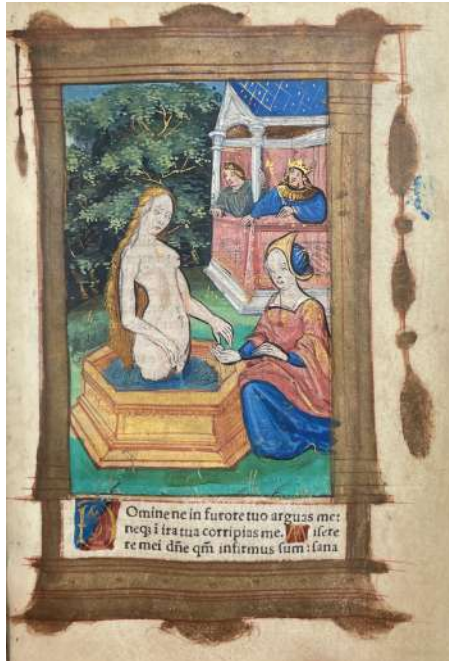 Domine ne in furore tuo arguas me:
neqꝫ ī ira tua corripias me. Misere
re mei dñe qm̄ infirmus sum: sana